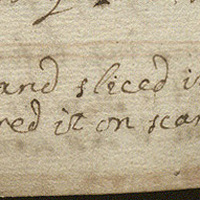 and sliced i
red it on scar